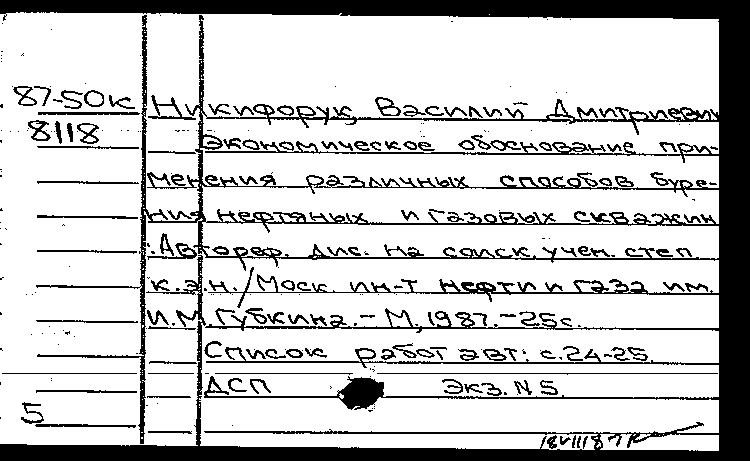 87-50к Никифорук, Василий Дмитриевич
8118 Экономическое обоснование при-
менения различных способов буре-
ния нефтяных и газовых скважин
: Автореф. дис. на соиск. учен. степ.
к.э.н. / Моск. ин-т нефти и газа им.
И.М. Губкина. - М., 1987. - 25с.
Список работ авт.: с.24-25.
ДСП Экз. N 5.
5